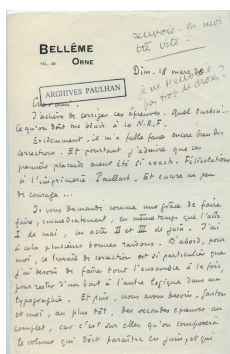 renvoie-la moi
très vite !
BELLÊME
TÉL. 38 ORNE
Dim. 18 mars
ARCHIVES PAULHAN
Cher ami.
J'achève de corriger ces épreuves. Quel turbin...
ce qu'on doit me bénir à la N.R.F.
Évidemment, il m'a fallu faire encore bien des
corrections. Et pourtant j'admire que ces
premiers placards aient été si exacts. Félicitations
à l'imprimerie Paillart. Et encore un peu
de courage...
Je vous demande comme une grâce de faire
faire, immédiatement, en même temps que l'acte
I de mai, les actes II et III de juin. J'ai
à cela plusieurs bonnes raisons. D'abord, pour
moi, le travail de correction est si particulier que
j'ai besoin de faire tout l'ensemble à la fois,
pour rester d'un bout à l'autre logique dans ma
typographie. Et puis, nous avons besoin, Gaston
et moi, au plus tôt, des secondes épreuves au
complet, car c'est sur elles qu'on composera
le volume qui doit paraître en juin, et qui